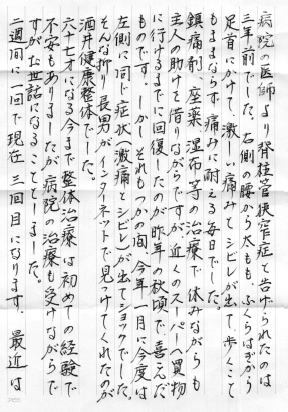 病院の医師より脊柱管狭窄症と告げられたのは
三年前でした。右側の腰から太もも、ふくらはぎから
足首にかけて、激しい痛みとシビレが出て、歩くこと
もままならず痛みに耐える毎日でした。
鎮痛剤、座薬、湿布等の治療で、休みながらも
主人の助けを借りながらですが近くのスーパーへ買物
に行けるまでに回復したのが昨年の秋頃で、喜んだ
ものです。しかし、それもつかの間、今年一月に今度は
左側に同じ症状（激痛とシビレ）が出てショックでした。
そんな折り、長男がインターネットで見つけてくれたのが
酒井健康整体でした。
六十七才になる今まで整体治療は初めての経験で
不安もありましたが病院の治療も受けながらで
すがお世話になることとしました。
二週間に一回で現在三回目になります。最近は